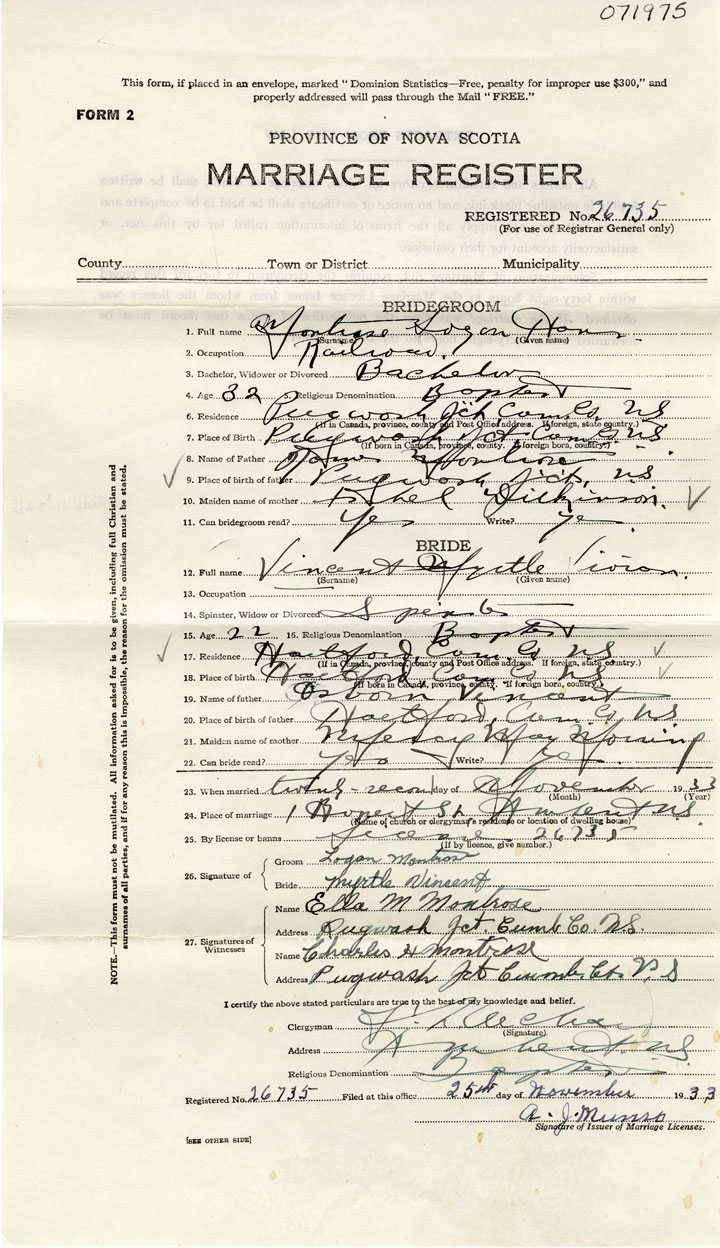 071975
This form, if placed in an envelope, marked "Dominion Statistics—Free, penalty for improper use $300," and
properly addressed will pass through the Mail "FREE."
FORM 2
PROVINCE OF NOVA SCOTIA
MARRIAGE REGISTER
REGISTERED No. 26735
(For use of Registrar General only)
County Town or District Municipality
BRIDEGROOM
1. Full name Montrose Logan
(Surname) (Given name)
2. Occupation Railroad
3. Bachelor, Widower or Divorced Bachelor
4. Age 32 Religious Denomination Baptist
6. Residence Pugwash Jct Cum Co. NS
(If in Canada, province, county and Post Office address. If foreign, state country.)
7. Place of Birth Pugwash Jct. Cum Co NS
(If born in Canada, province, county. If foreign born, country.)
8. Name of Father Montrose
9. Place of birth of father Pugwash Jct. NS
10. Maiden name of mother Ethel Dickinson
11. Can bridegroom read? Yes Write? Yes
BRIDE
12. Full name Vincent Myrtle Vivian
(Surname) (Given name)
13. Occupation
14. Spinster, Widow or Divorced Spinster
15. Age 22 16. Religious Denomination Baptist
17. Residence Hartford, Cum. Co NS
(If in Canada, province, county and Post Office address. If foreign, state country.)
18. Place of birth Hartford Cum Co NS
(If born in Canada, province, county. If foreign born, country.)
19. Name of father Osborn Vincent
20. Place of birth of father Hartford, Cum. Co NS
21. Maiden name of mother May
22. Can bride read? Yes Write? Yes
23. When married day of November 1933
(Month) (Year)
24. Place of marriage 1 Rupert St. Amherst NS.
(Name of church or clergyman's residence or location of dwelling house)
25. By license or banns License 26735
(If by licence, give number.)
26. Signature of
Groom Logan Montrose
Bride Myrtle Vincent
27. Signatures of Witnesses
Name Ella M Montrose
Address Pugwash Jct Cumb Co. N.S.
Name Charles H Montrose
Address Pugwash Jct Cumb. Co. N.S
I certify the above stated particulars are true to the best of my knowledge and belief.
Clergyman
(Signature)
Address Amherst NS
Religious Denomination Baptist
Registered No. 26735 Filed at this office 25th day of November 1933
A. J. Munro
Signature of Issuer of Marriage Licenses.
[SEE OTHER SIDE]
NOTE.—This form must not be mutilated. All information asked for is to be given, including full Christian and
surnames of all parties, and if for any reason this is impossible, the reason for the omission must be stated.